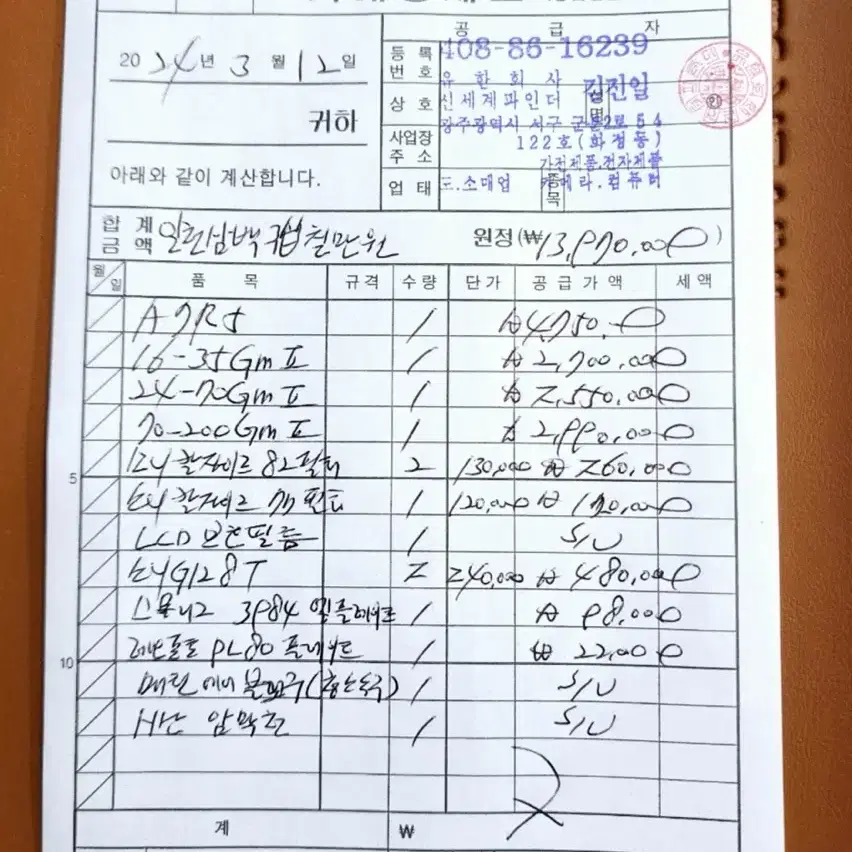 공 급 자
20 24 년 3 월 12 일
등 록 번 호 408-86-16239
상 호 유한회사 신세계파인더 성명 김진일
귀하
사업장 주 소 광주광역시 서구 군분2로 54
122호(화정동)
아래와 같이 계산합니다.
업 태 도.소매업 종목 가전제품.전자제품
카메라.컴퓨터
합 계 금 액 일천삼백 칠만원 원정(₩13,970,000)
월 일 품 목 규격 수량 단가 공급가액 세액
A7R5 1 ₩4,750,0
16-35Gm II 1 ₩2,700,000
24-70Gm II 1 ₩2,550,000
70-200Gm II 1 ₩2,990,000
칼자이즈 82필터 2 130,000 ₩260,000
5
칼자이즈 77 필터 1 120,000 ₩120,000
LCD 보호필름 1 S/V
G128T 2 240,000 ₩480,000
스몰리그 3984 엘플레이트 1 ₩98,000
레오포토 PL80 플레이트 1 ₩22,000
10
1 S/V
1 S/V
계 ₩